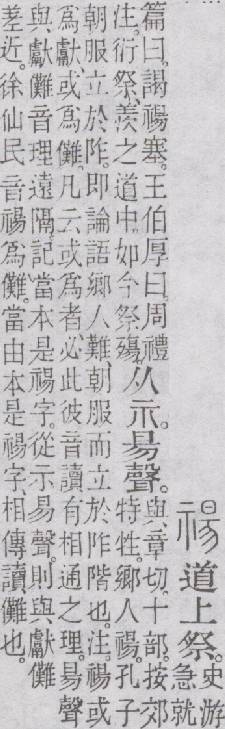 禓道上祭。史游
急就
篇曰。謁禓塞。王伯厚曰。周禮
注。衍祭羨之道中。如今祭殤。
从示。昜聲。
與章切。十部。按郊
特牲。鄉人禓。孔子
朝服立於阼。即論語鄉人難朝服而立於阼階也。注禓或
爲獻或爲儺。凡云或爲者必此彼音讀有相通之理。昜聲
與獻儺音理遠隔。記當本是禓字。從示易聲。則與獻儺
差近。徐仙民音禓爲儺。當由本是禓字。相傳讀儺也。